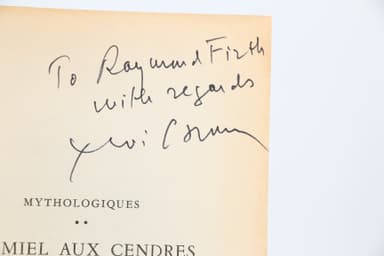 To Raymond Firth
with regards
MYTHOLOGIQUES
• •
MIEL AUX CENDRES